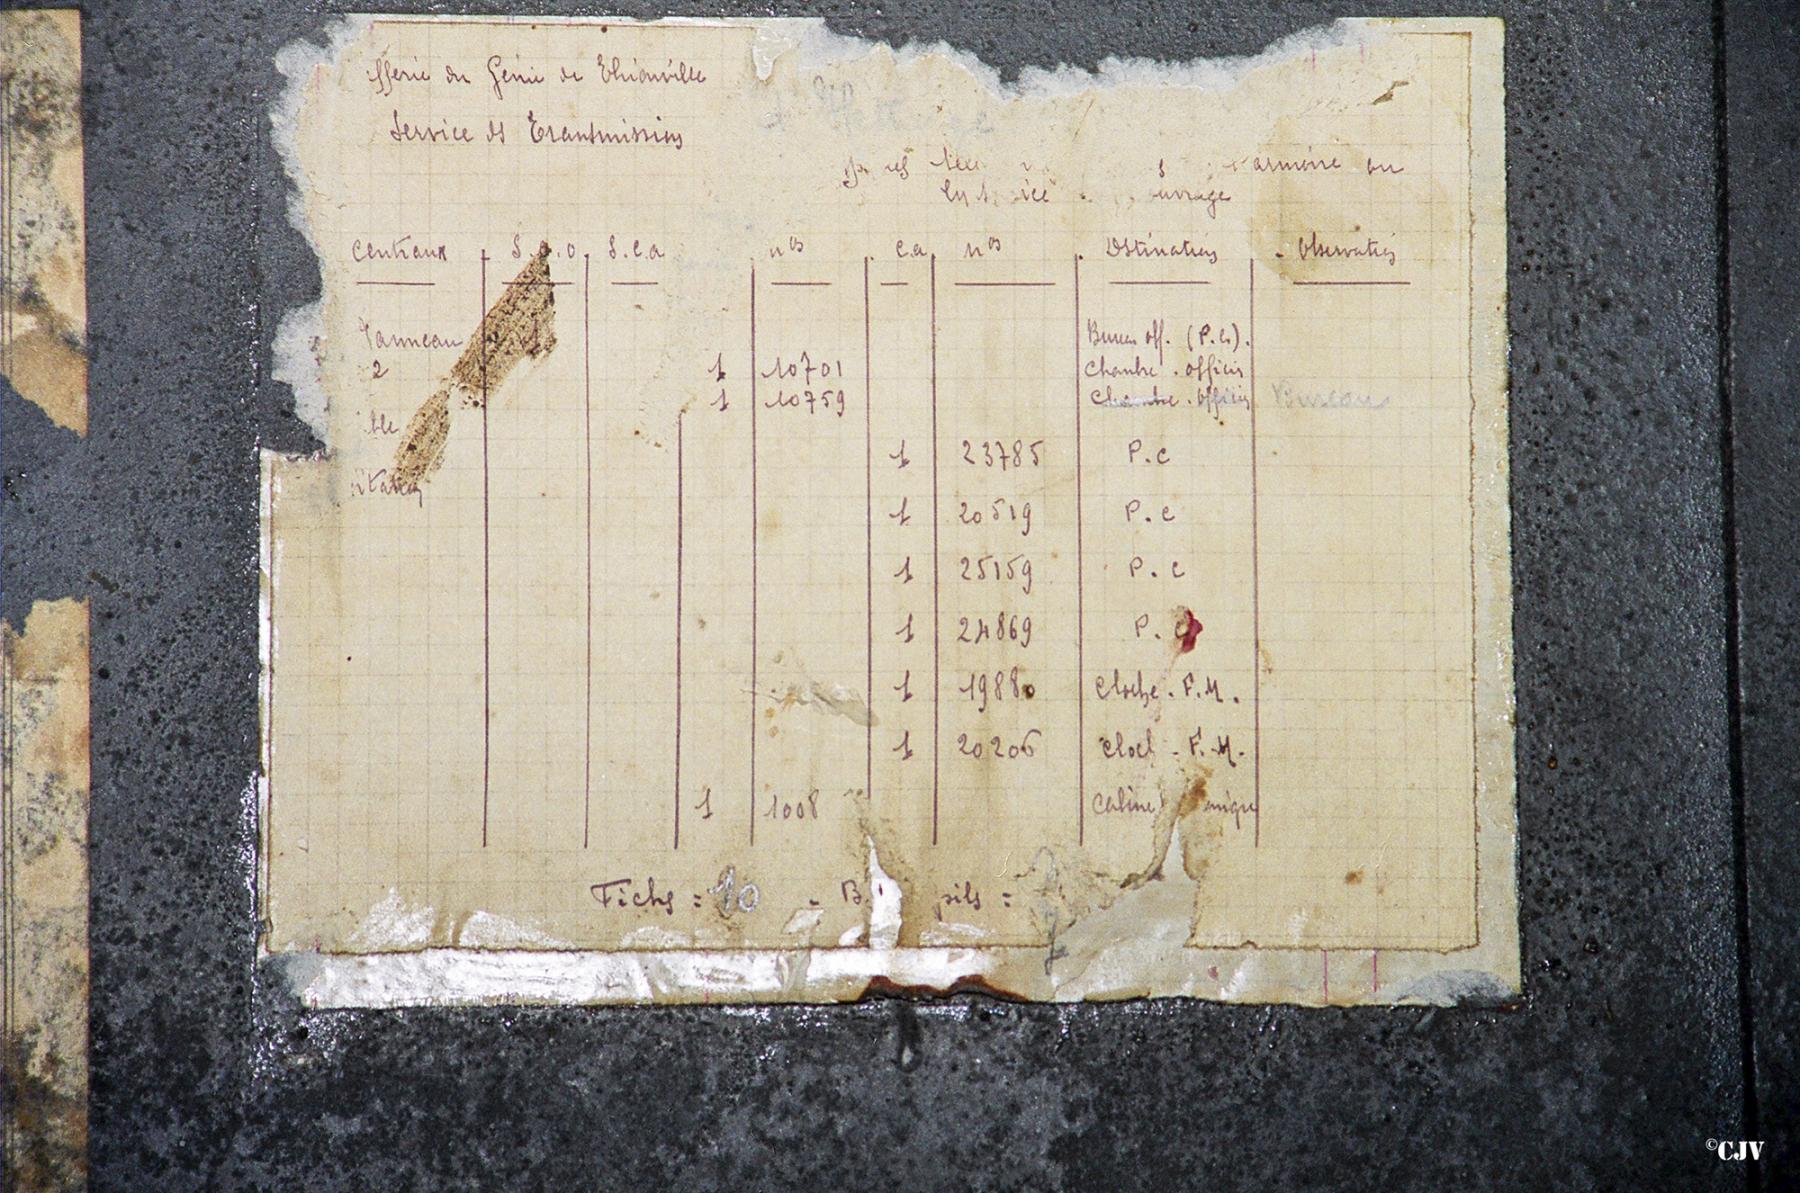 fferie du Génie de Thionville
Service des Transmissions
l'armoire au
ouvrage
Centraux S.C.A nos C.A nos Destinations Observations
Panneau 1 Bureau off. (P.C).
2 1 10701 Chambre. officiers
1 10759 Chambre. officiers Bureau
1 23785 P.C
1 20519 P.C
1 25159 P.C
1 24869 P.C
1 19880 Cloche. F.M.
1 20206 Cloche - F.M.
1 1008
Fiches = 10 -
©CJV